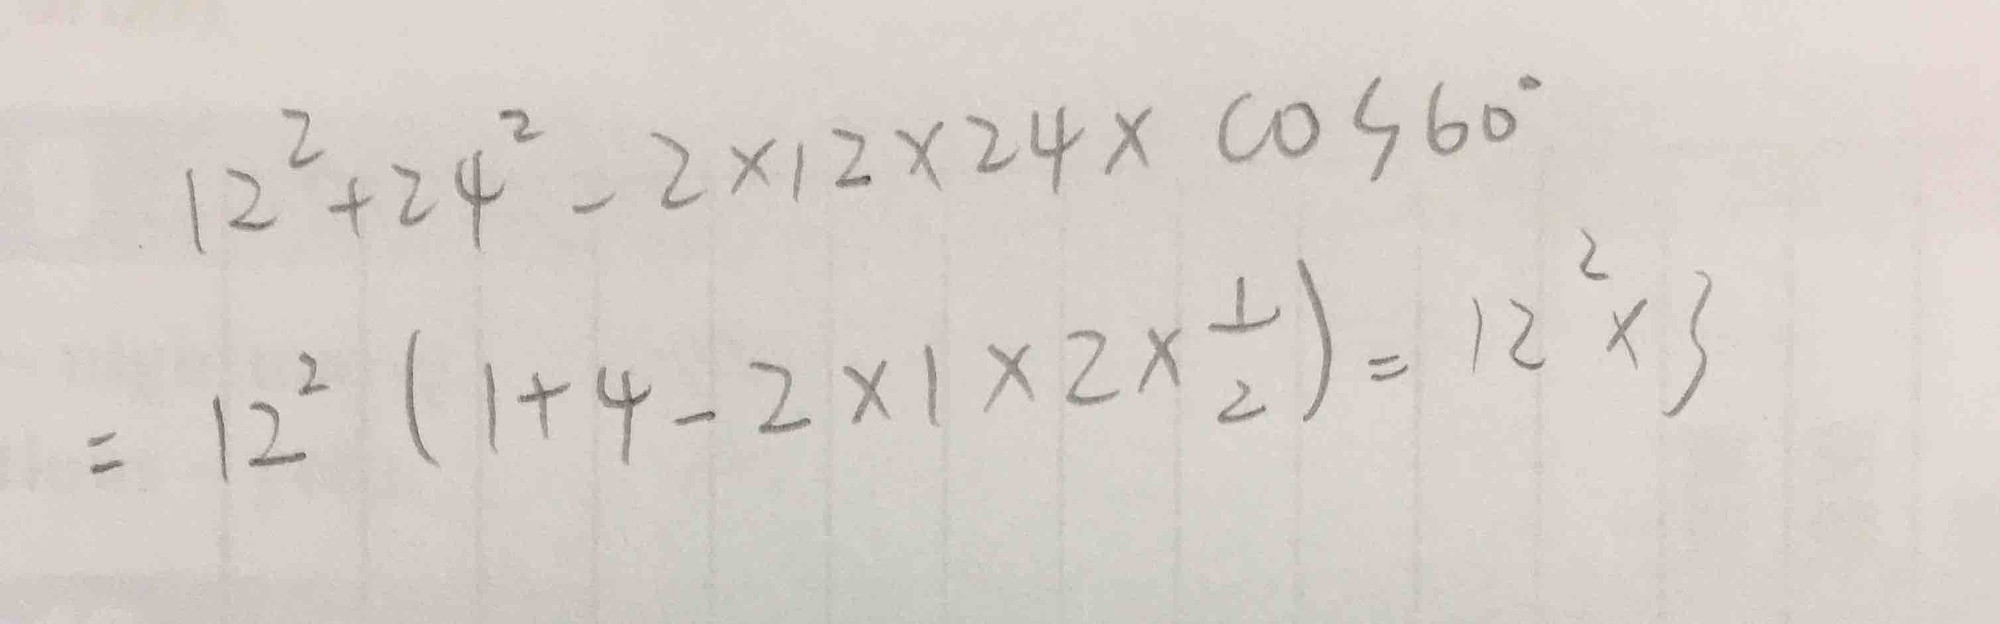 12² + 24² - 2×12×24× cos60°
= 12² (1+4-2×1×2×½) = 12²×3